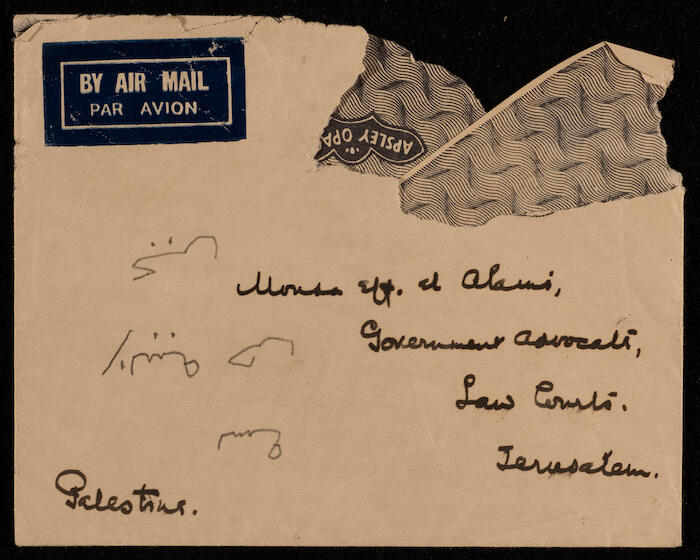 BY AIR MAIL
PAR AVION
APSLEY OPA
Mousa Eff. el Alami,
Government Advocate,
Law Courts.
Jerusalem.
Palestine.